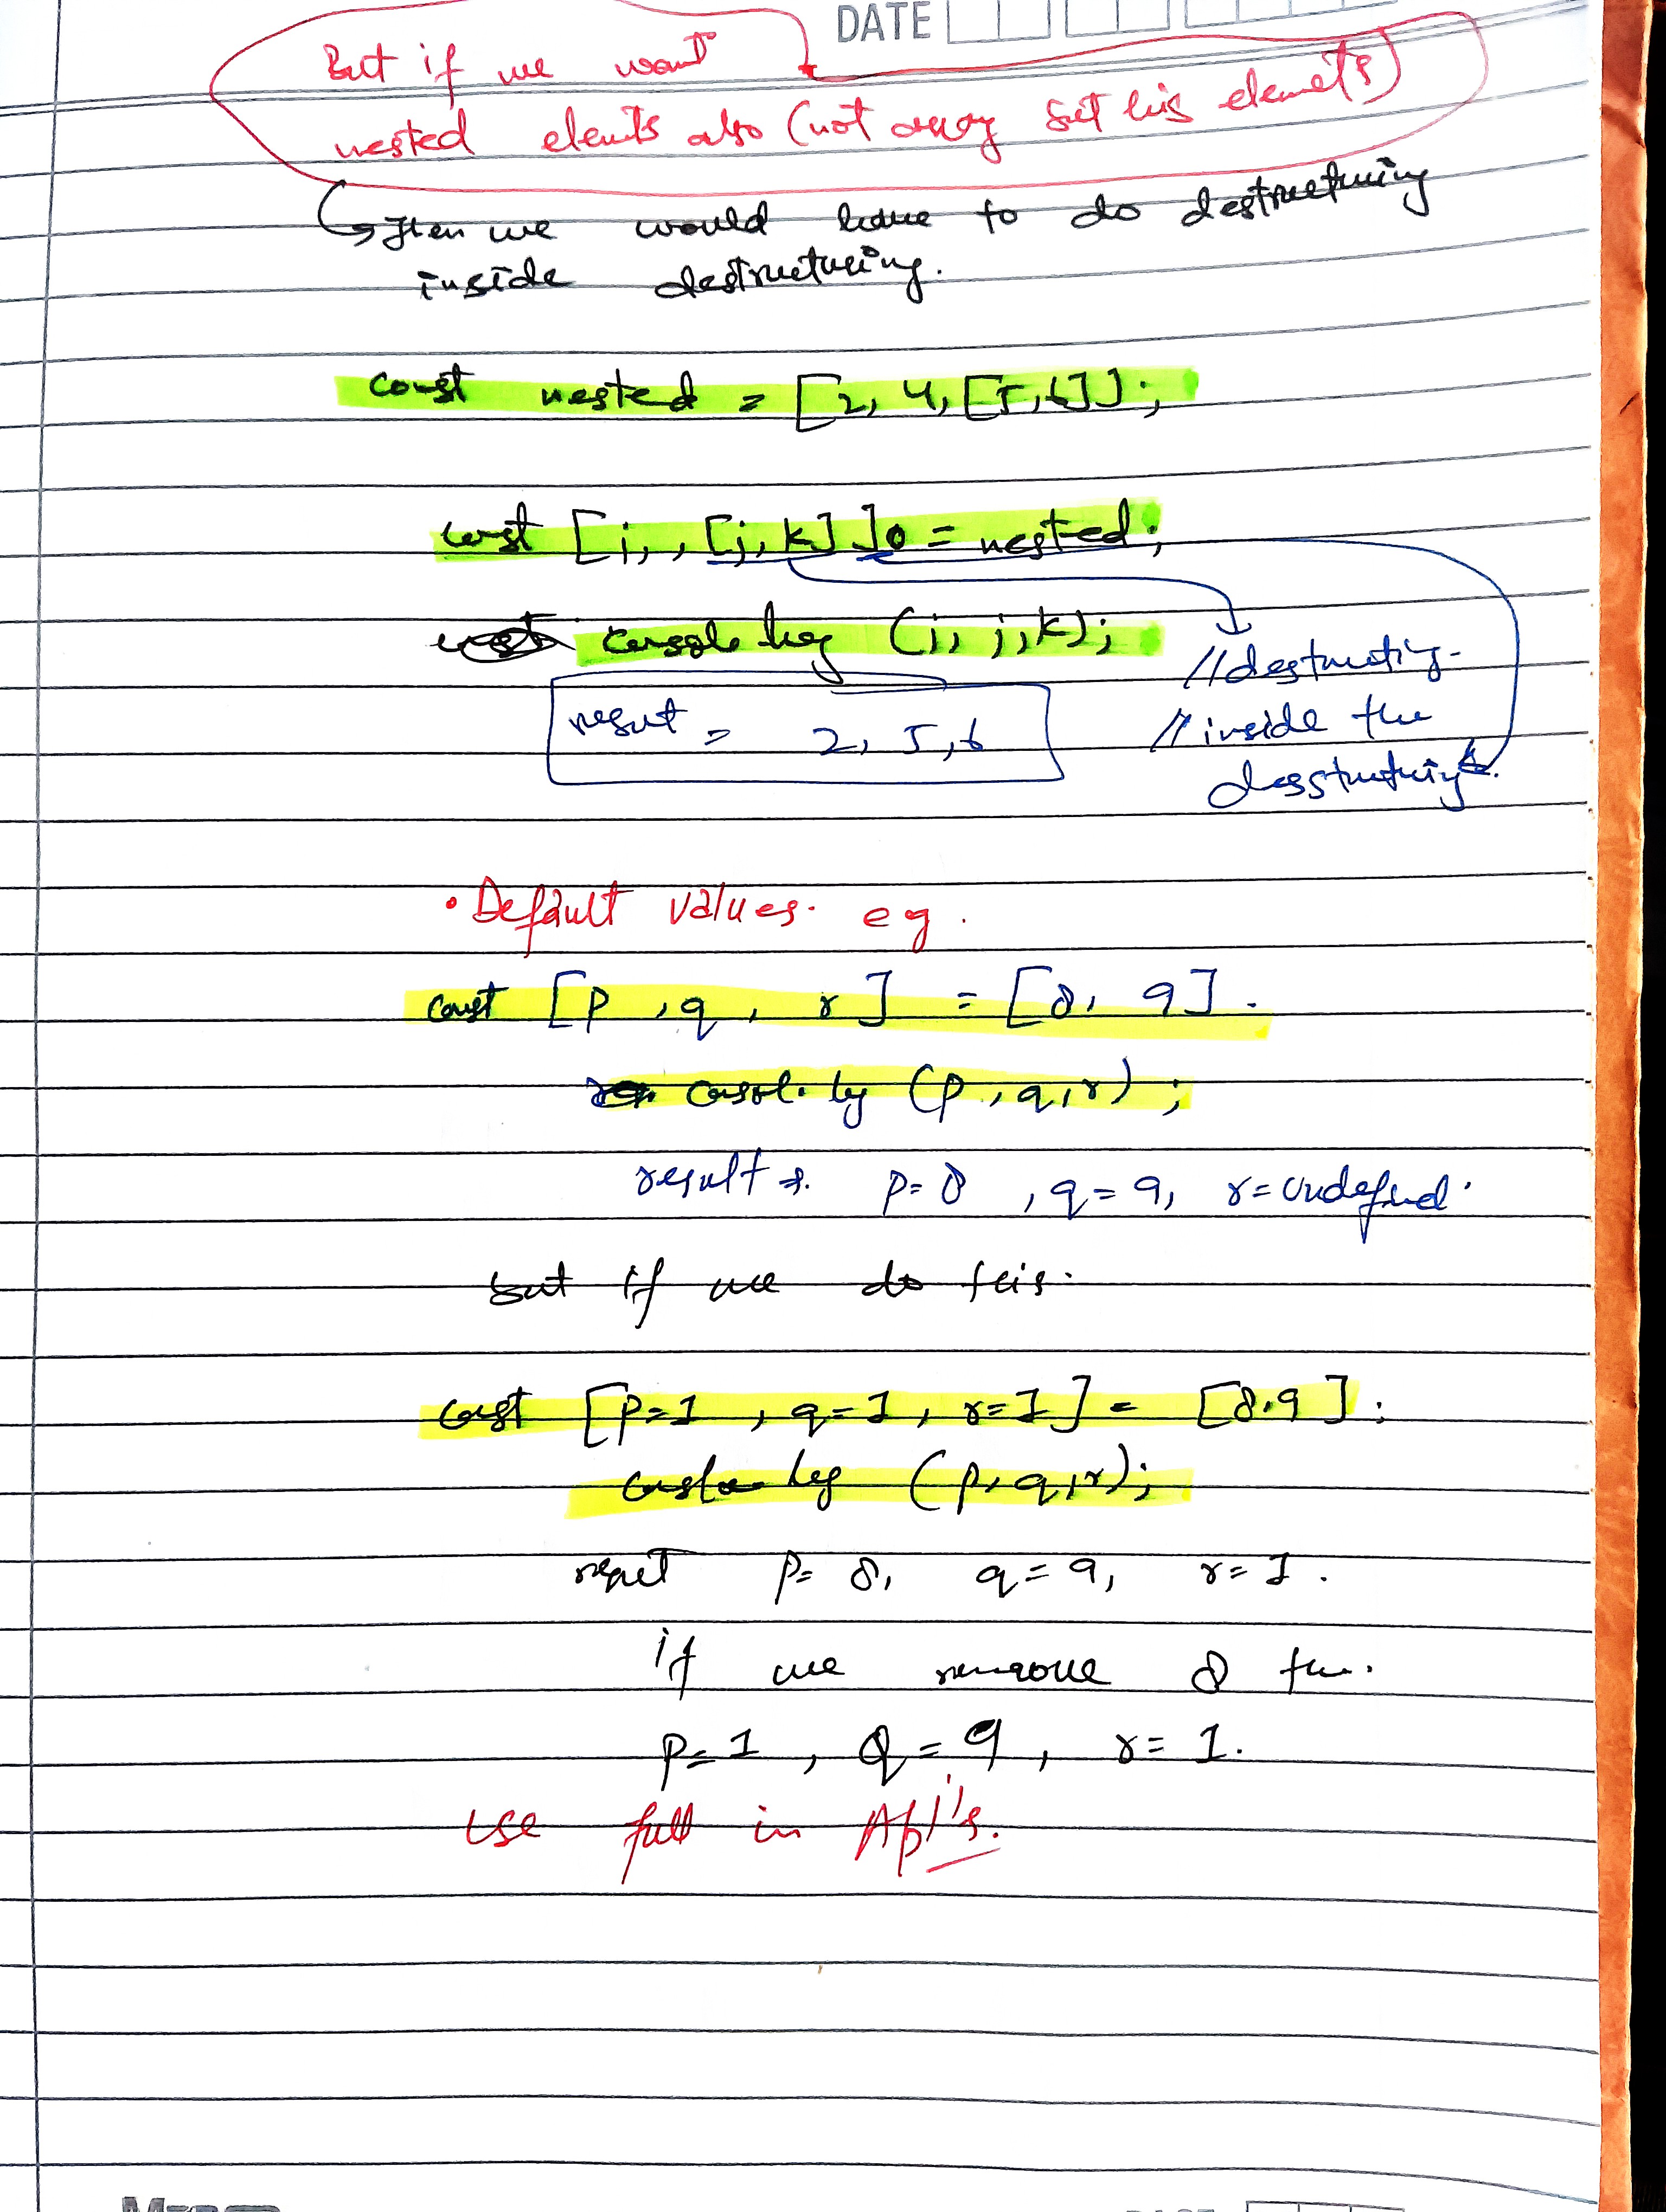 DATE
But if we want
nested elemts also (not array but his elements)
Then we would have to do destructuring
inside destructuring.
const nested = [2, 4, [5,6]];
const [i, , [j, k] ] = nested;
console log (i, j, k);
result = 2, 5, 6
// destructing
// inside the
desstructuring.
• Default values. eg.
const [p, q, r] = [8, 9].
consol. log (p, q, r);
result p= 8, q= 9, r= undefined.
but if we do this.
const [p=1, q=1, r=1] = [8,9];
log (p, q, r);
p= 8, q= 9, r= 1.
if we remove 8 then.
p=1, Q=9, r= 1.
use full in Api's.